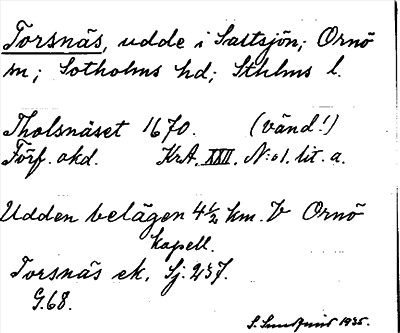 Torsnäs, udde i Saltsjön; Ornö
sn; Sotholms hd; Sthlms l.
Tholsnäset 1670. (vänd!)
Förf. okd. KrA. XXII. N:o 1. lit. a.
Udden belägen 4½ km. V Ornö
kapell.
Torsnäs ek. Sj. 237.
G.68.
S. Sundquist 1935.